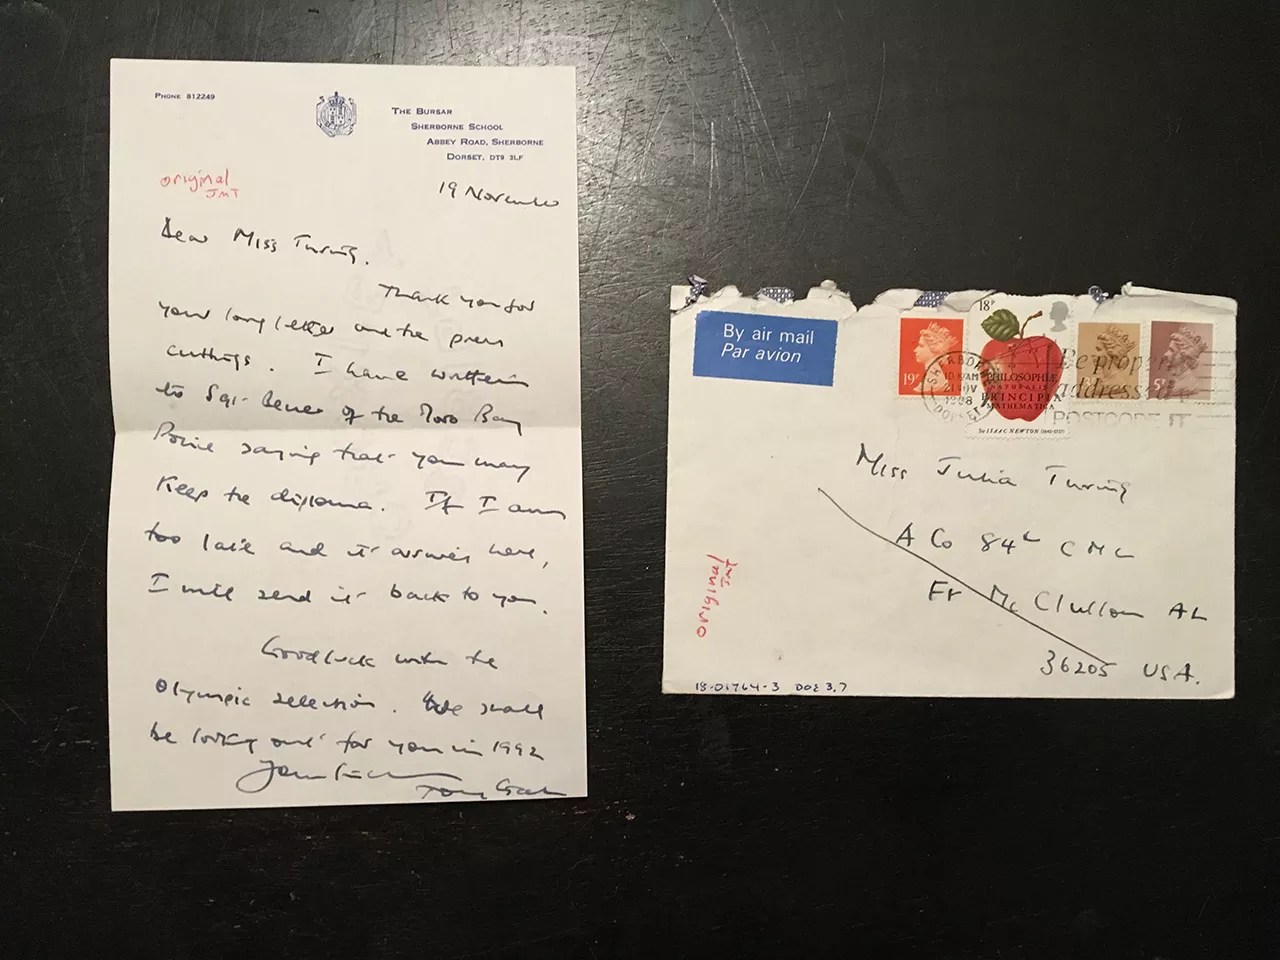 PHONE 812249
THE BURSAR
SHERBORNE SCHOOL
ABBEY ROAD, SHERBORNE
DORSET, DT9 3LF
original
JMT
19 November
Dear Miss Turing,
Thank you for
your long letter and the press
cuttings. I have written
to Sgt. Bever of the Moro Bay
Police saying that you may
keep the diploma. If I am
too late and it arrives here,
I will send it back to you.
Good luck with the
Olympic selection. We shall
be looking out for you in 1992
Tony
By air mail
Par avion
19P
18P
PHILOSOPHIÆ
NATURALIS
PRINCIPIA
MATHEMATICA
Sir ISAAC NEWTON (1642-1727)
5P
SHERBORNE
10 AM
21 NOV
1988
DORSET
Be properly
addressed
POSTCODE IT
Miss Julia Turing
A Co 84th CML
Ft McClullan AL
36205 USA.
original
JMT
18-01764-3 DOE 3.7